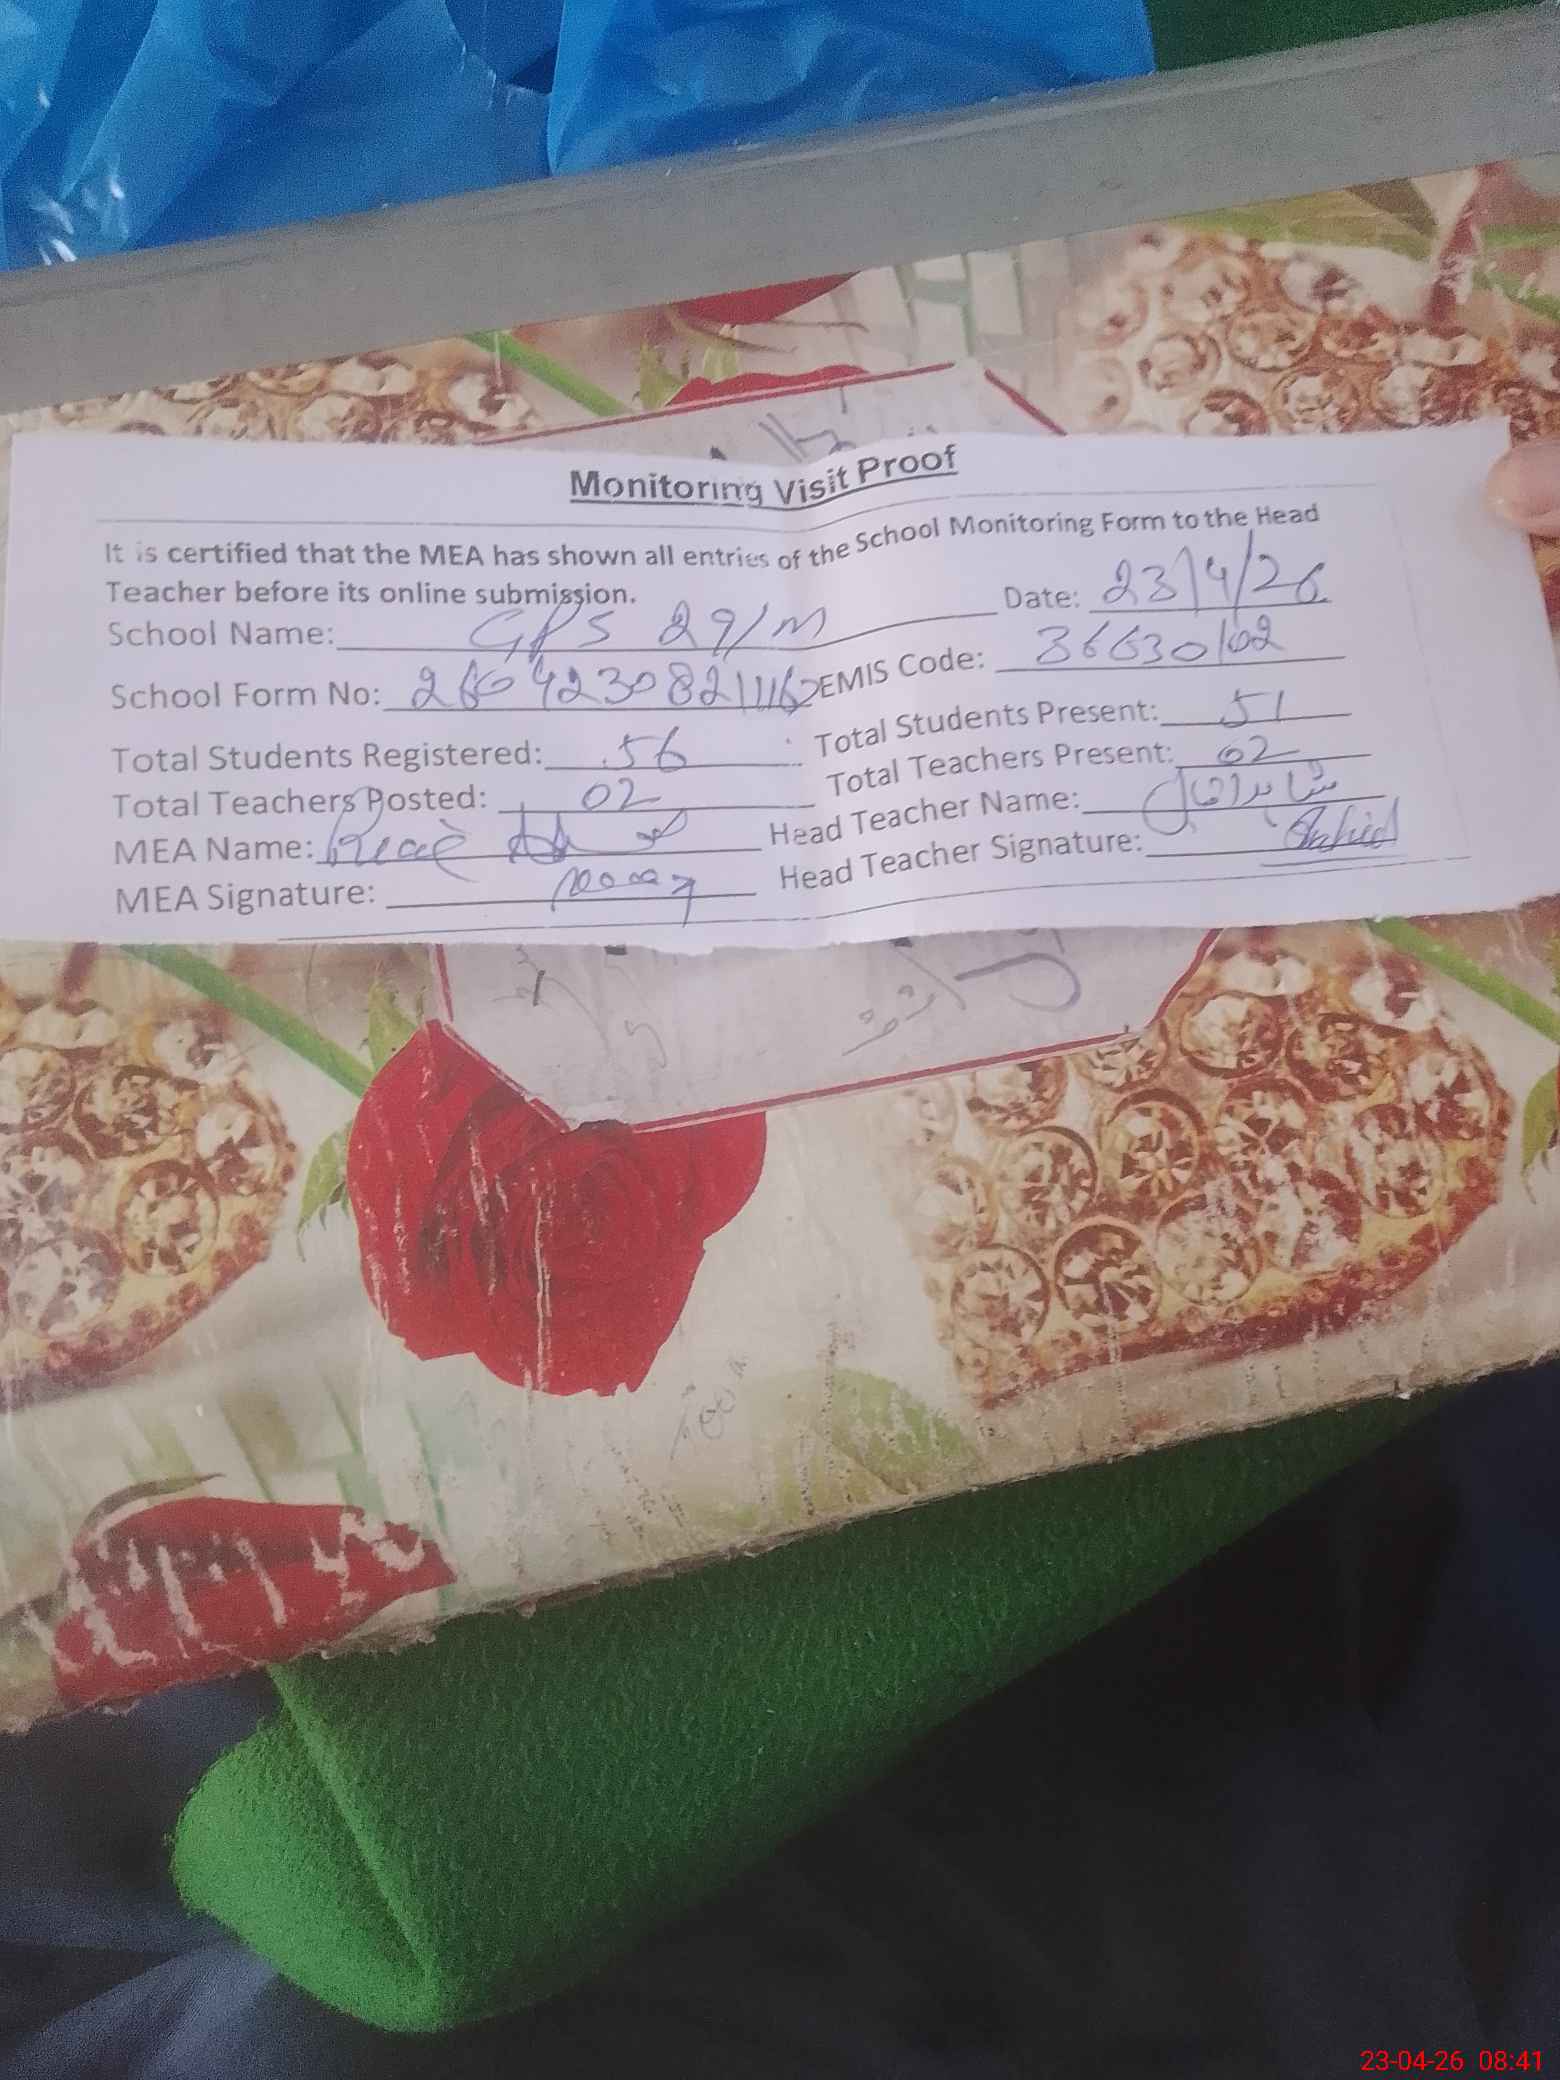 Monitoring Visit Proof
It is certified that the MEA has shown all entries of the School Monitoring Form to the Head
Teacher before its online submission.
Date: 23/4/26
School Name: GPS 29/M
EMIS Code: 36630102
School Form No:
Total Students Registered: 56
Total Students Present: 51
Total Teachers Posted: 02
Total Teachers Present: 02
MEA Name:
Head Teacher Name: شاہد اقبال
MEA Signature:
Head Teacher Signature: Shahid
23-04-26 08:41